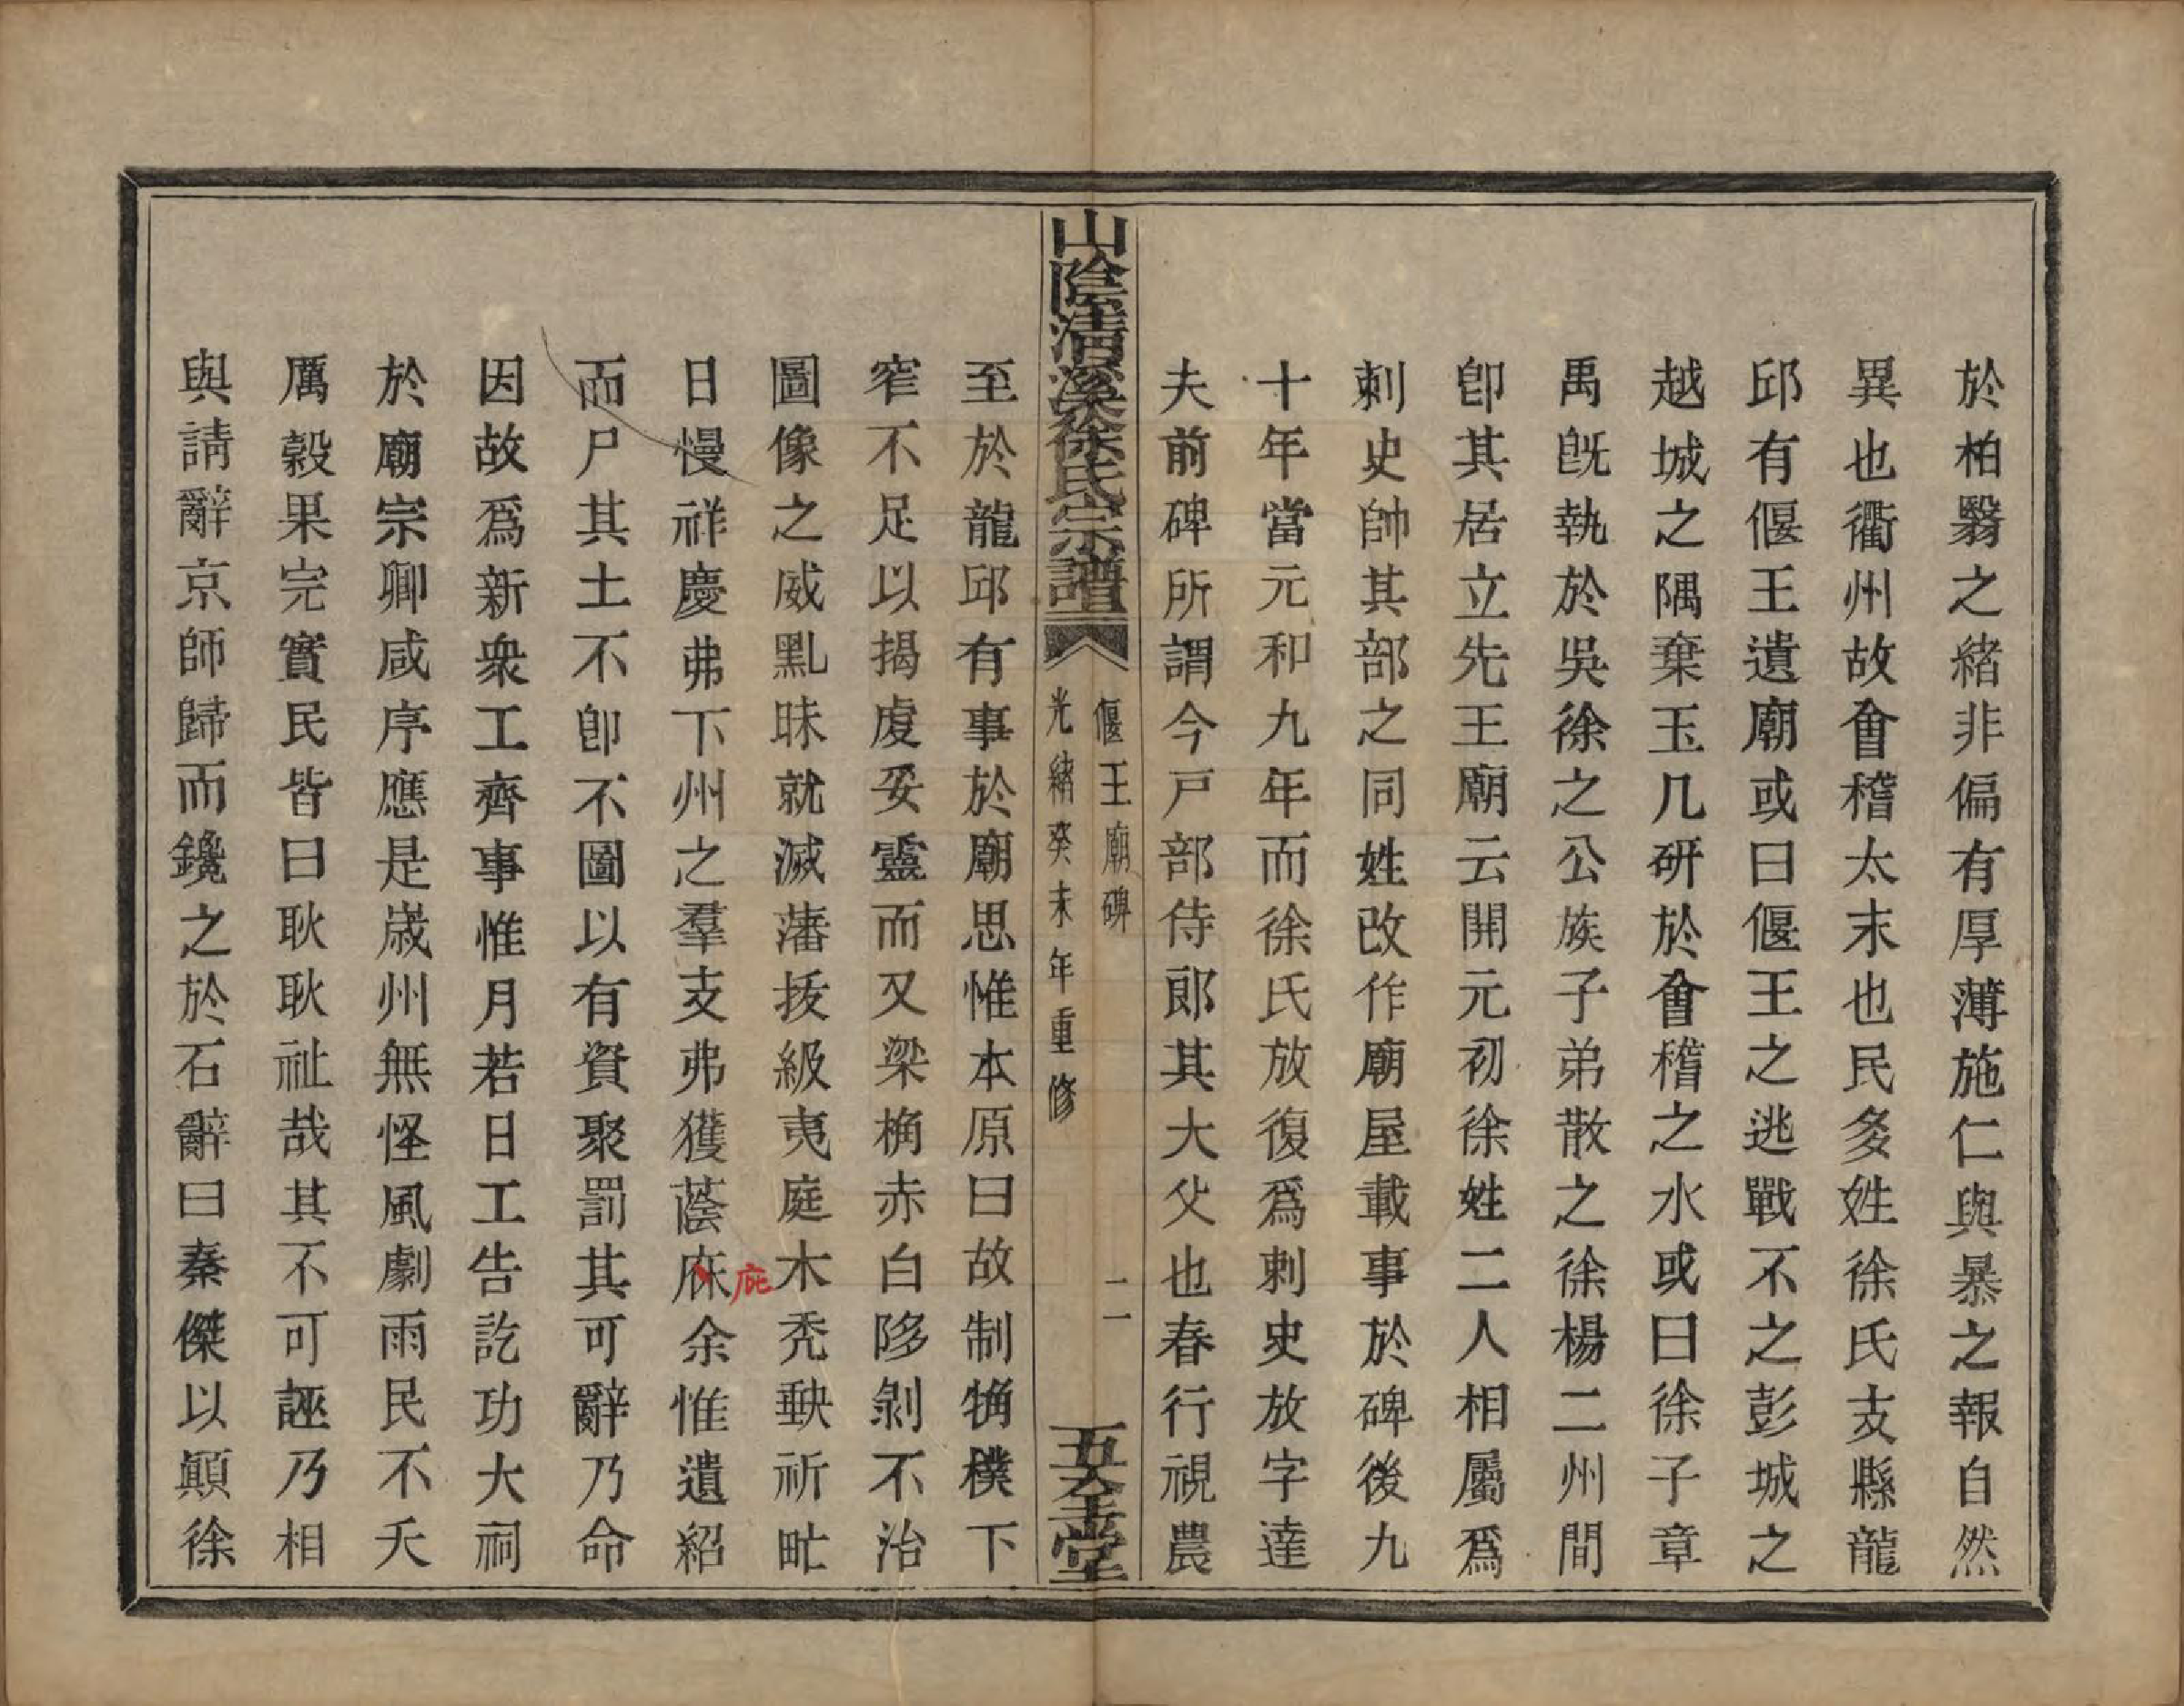 於柏翳之緒非偏有厚薄施仁與暴之報自然
異也衢州故會稽太末也民多姓徐氏支縣龍
邱有偃王遺廟或曰偃王之逃戰不之彭城之
越城之隅棄玉几研於會稽之水或曰徐子章
禹旣執於吳徐之公族子弟散之徐楊二州間
卽其居立先王廟云開元初徐姓二人相屬爲
刺史帥其部之同姓改作廟屋載事於碑後九
十年當元和九年而徐氏放復爲刺史放字達
夫前碑所謂今戸部侍郞其大父也春行視農
山陰清溪徐氏宗譜
偃王廟碑
光緖癸未年重修
二
五全堂
至於龍邱有事於廟思惟本原曰故制觕樸下
窄不足以揭虔妥靈而又梁桷赤白陊剝不治
圖像之威黓昧就滅藩拔級夷庭木禿䡏祈甿
日慢祥慶弗下州之羣支弗獲蔭庥余惟遺紹
庇
而尸其土不卽不圖以有資聚罰其可辭乃命
因故爲新衆工齊事惟月若日工告訖功大祠
於廟宗卿咸序應是歲州無怪風劇雨民不夭
厲穀果完實民皆曰耿耿祉哉其不可誣乃相
與請辭京師歸而鑱之於石辭曰秦傑以顚徐